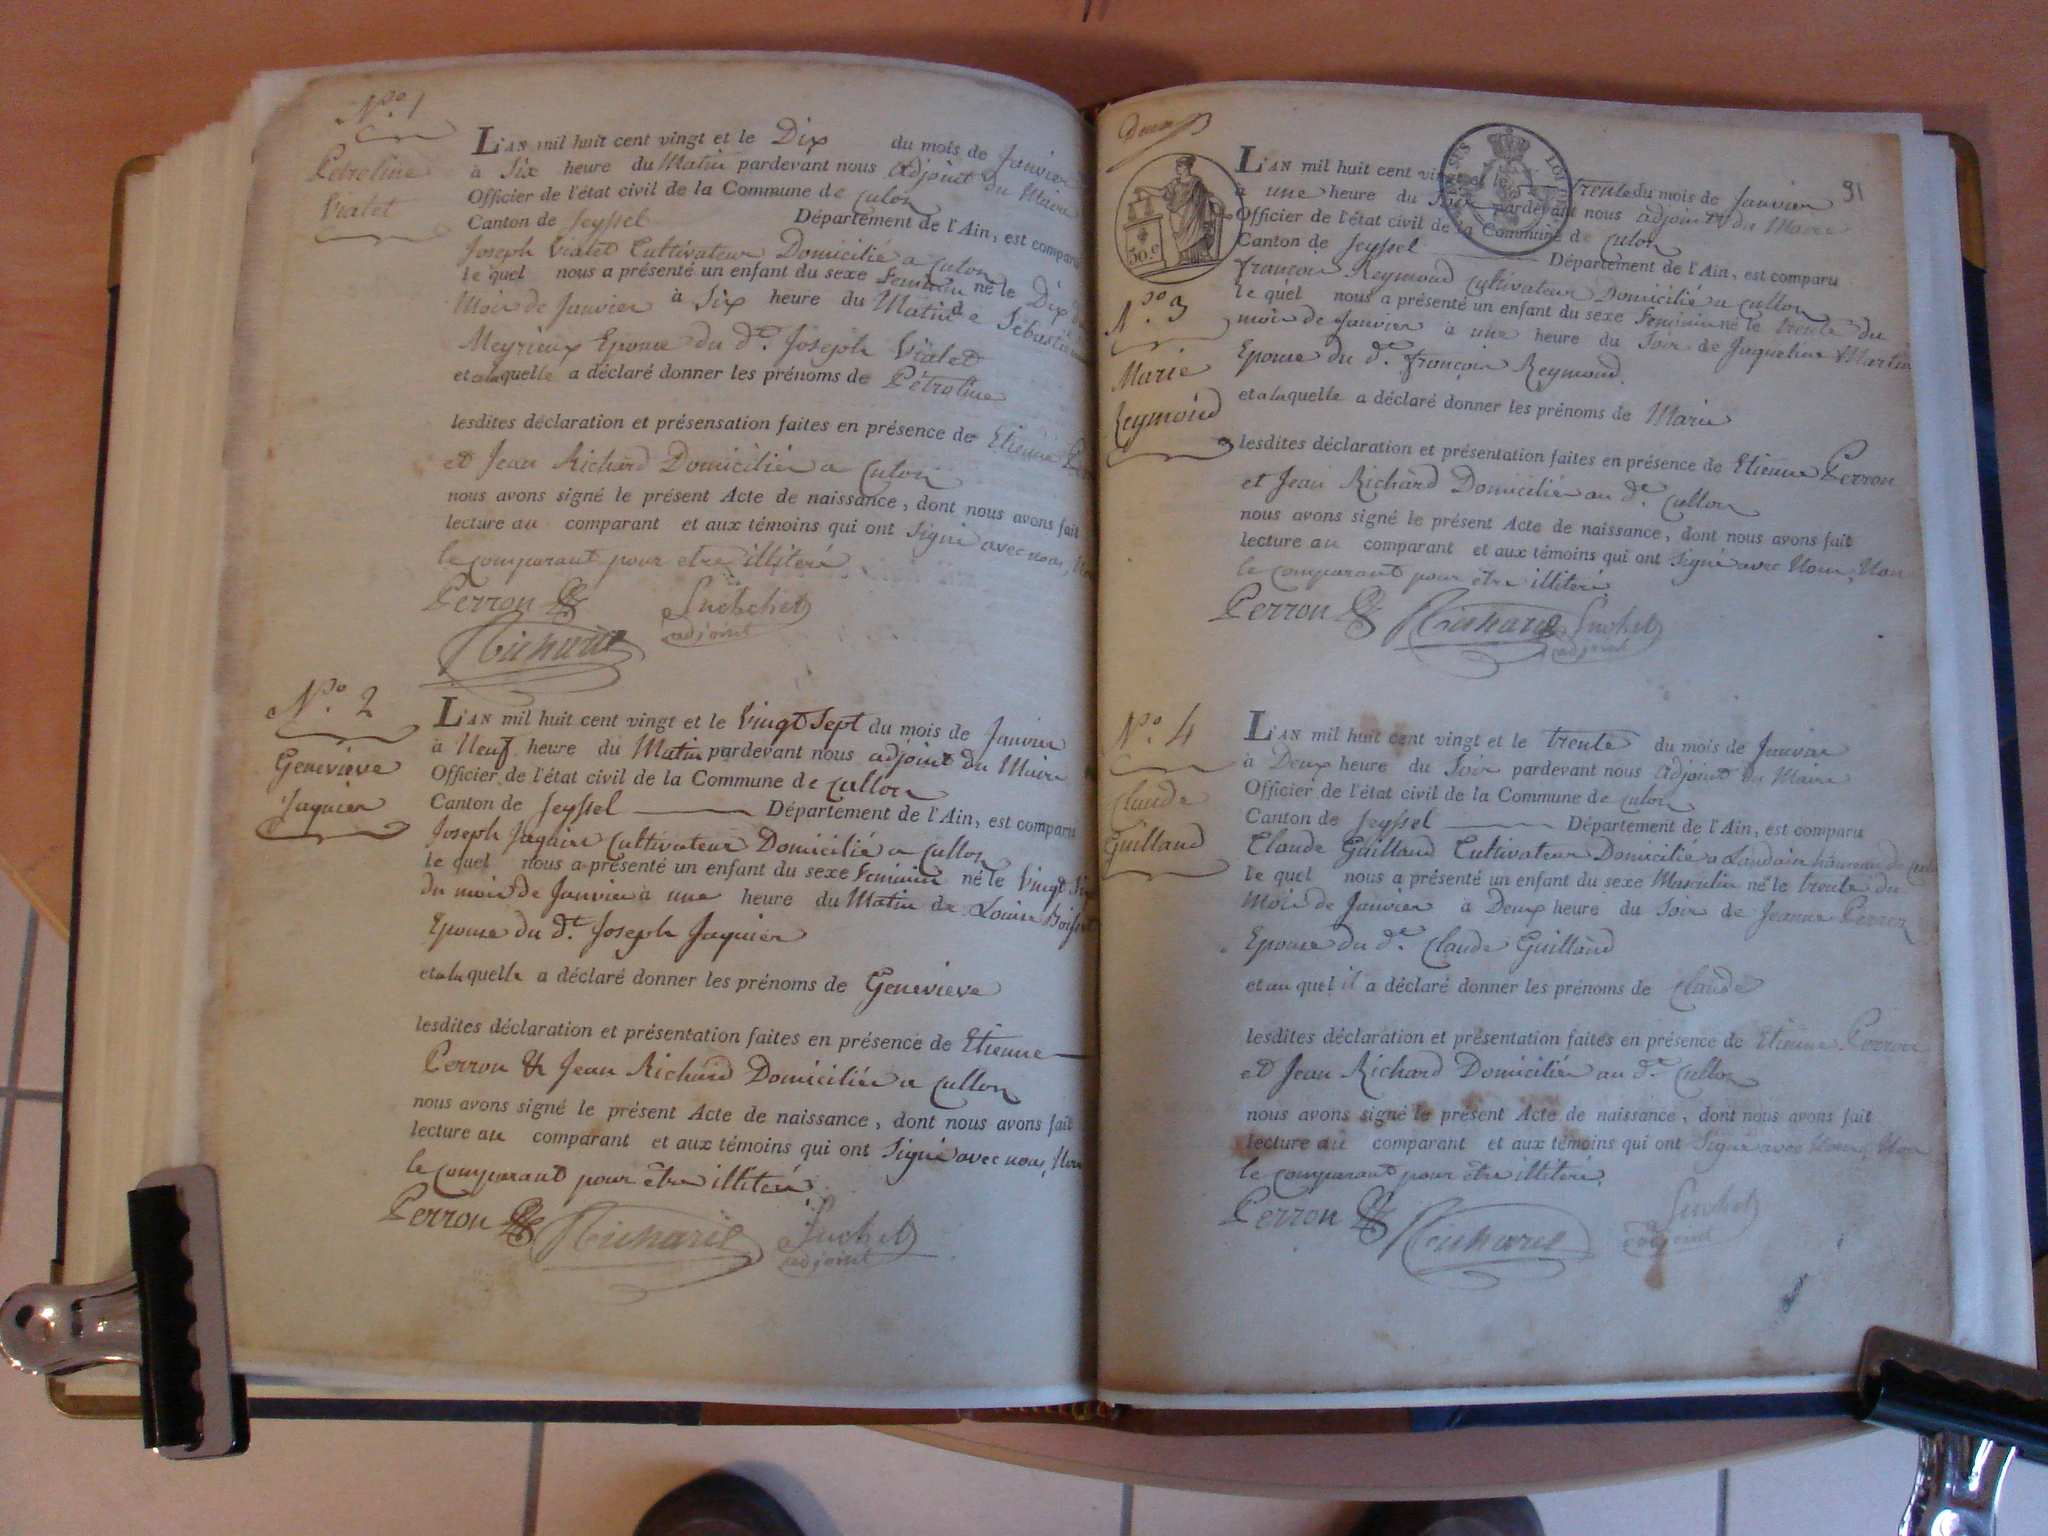 N.º 1
Pétroline
Vialet
L'AN mil huit cent vingt et le Dix du mois de Janvier
à Six heure du Matin pardevant nous adjoint du Maire
Officier de l'état civil de la Commune de Culoz
Canton de Seyssel Département de l'Ain, est comparu
Joseph Vialet Cultivateur Domicilié a Culoz
le quel nous a présenté un enfant du sexe Feminin né le Dix
Mois de Janvier à Six heure du Matin de
Meyrieux Epouse du d.t Joseph Vialet
et a la quelle a déclaré donner les prénoms de Pétroline
lesdites déclaration et présensation faites en présence de Etienne
et Jean Richard Domiciliés a Culoz
nous avons signé le présent Acte de naissance, dont nous avons fait
lecture au comparant et aux témoins qui ont Signé avec nous,
le comparant pour etre illiteré
Perron
Richard
Suchet
adjoint
N.º 2
Genevieve
Jaquier
L'AN mil huit cent vingt et le Vingt Sept du mois de Janvier
à Neuf heure du Matin pardevant nous adjoint du Maire
Officier de l'état civil de la Commune de Culloz
Canton de Seyssel Département de l'Ain, est comparu
Joseph Jaquier Cultivateur Domicilié a Culloz
le quel nous a présenté un enfant du sexe Feminin né le Vingt
du mois de Janvier à une heure du Matin de Louise
Epouse du d.t Joseph Jaquier
et a la quelle a déclaré donner les prénoms de Genevieve
lesdites déclaration et présentation faites en présence de Etienne
Perron & Jean Richard Domiciliés a Culloz
nous avons signé le présent Acte de naissance, dont nous avons fait
lecture au comparant et aux témoins qui ont Signé avec nous, Non
le comparant pour être illiteré
Perron
Richard
Suchet
adjoint
Deux
91
50.c
N.º 3
Marie
Reymond
L'AN mil huit cent vingt et le trente du mois de Janvier
à une heure du Soir pardevant nous adjoint du Maire
Officier de l'état civil de la Commune de Culoz
Canton de Seyssel Département de l'Ain, est comparu
François Reymond Cultivateur Domicilié a Culloz
le quel nous a présenté un enfant du sexe Feminin né le trente du
mois de Janvier à une heure du Soir de Jaqueline Martin
Epouse du d.t François Reymond
et a la quelle a déclaré donner les prénoms de Marie
lesdites déclaration et présentation faites en présence de Etienne Perron
et Jean Richard Domiciliés au d.t Culloz
nous avons signé le présent Acte de naissance, dont nous avons fait
lecture au comparant et aux témoins qui ont Signé avec Nous, Non
le comparant pour être illiteré
Perron
Richard
Suchet
adjoint
N.º 4
Claude
Guilland
L'AN mil huit cent vingt et le trente du mois de Janvier
à Deux heure du Soir pardevant nous adjoint du Maire
Officier de l'état civil de la Commune de Culoz
Canton de Seyssel Département de l'Ain, est comparu
Claude Guilland Cultivateur Domicilié a hameau de
le quel nous a présenté un enfant du sexe Masculin né le trente du
Mois de Janvier à Deux heure du Soir de Jeanne Perron
Epouse du d.t Claude Guilland
et au quel il a déclaré donner les prénoms de Claude
lesdites déclaration et présentation faites en présence de Etienne Perron
et Jean Richard Domiciliés au d.t Culloz
nous avons signé le présent Acte de naissance, dont nous avons fait
lecture au comparant et aux témoins qui ont Signé avec Nous, Non
le comparant pour être illiteré
Perron
Richard
Suchet
adjoint